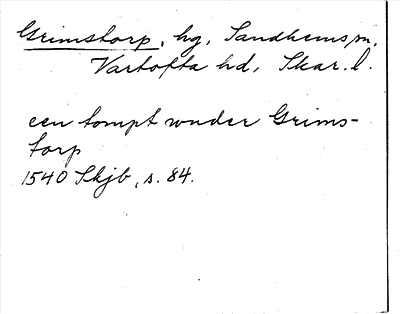 Grimstorp, hg, Sandhems sn,
Vartofta hd, Skar. l.
een tompt wnder Grims-
torp
1540 Skjb, s. 84.